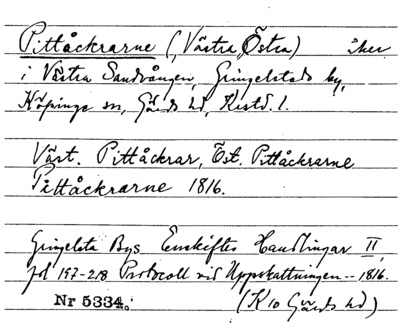 Pittåckrarne (Västra, Östra) åker
i Västra Sandvången, Gringelstads by,
Köpinge sn, Gärds hd, Krstd. l.
Väst. Pittåckrar, Öst. Pittåckrarne
Pittåckrarne 1816.
Gringelsta Bys Enskiftes Handlingar II,
fol 197-218 Protocoll vid Uppskattningen -- 1816.
Nr 5334. (K 10 Gärds hd)